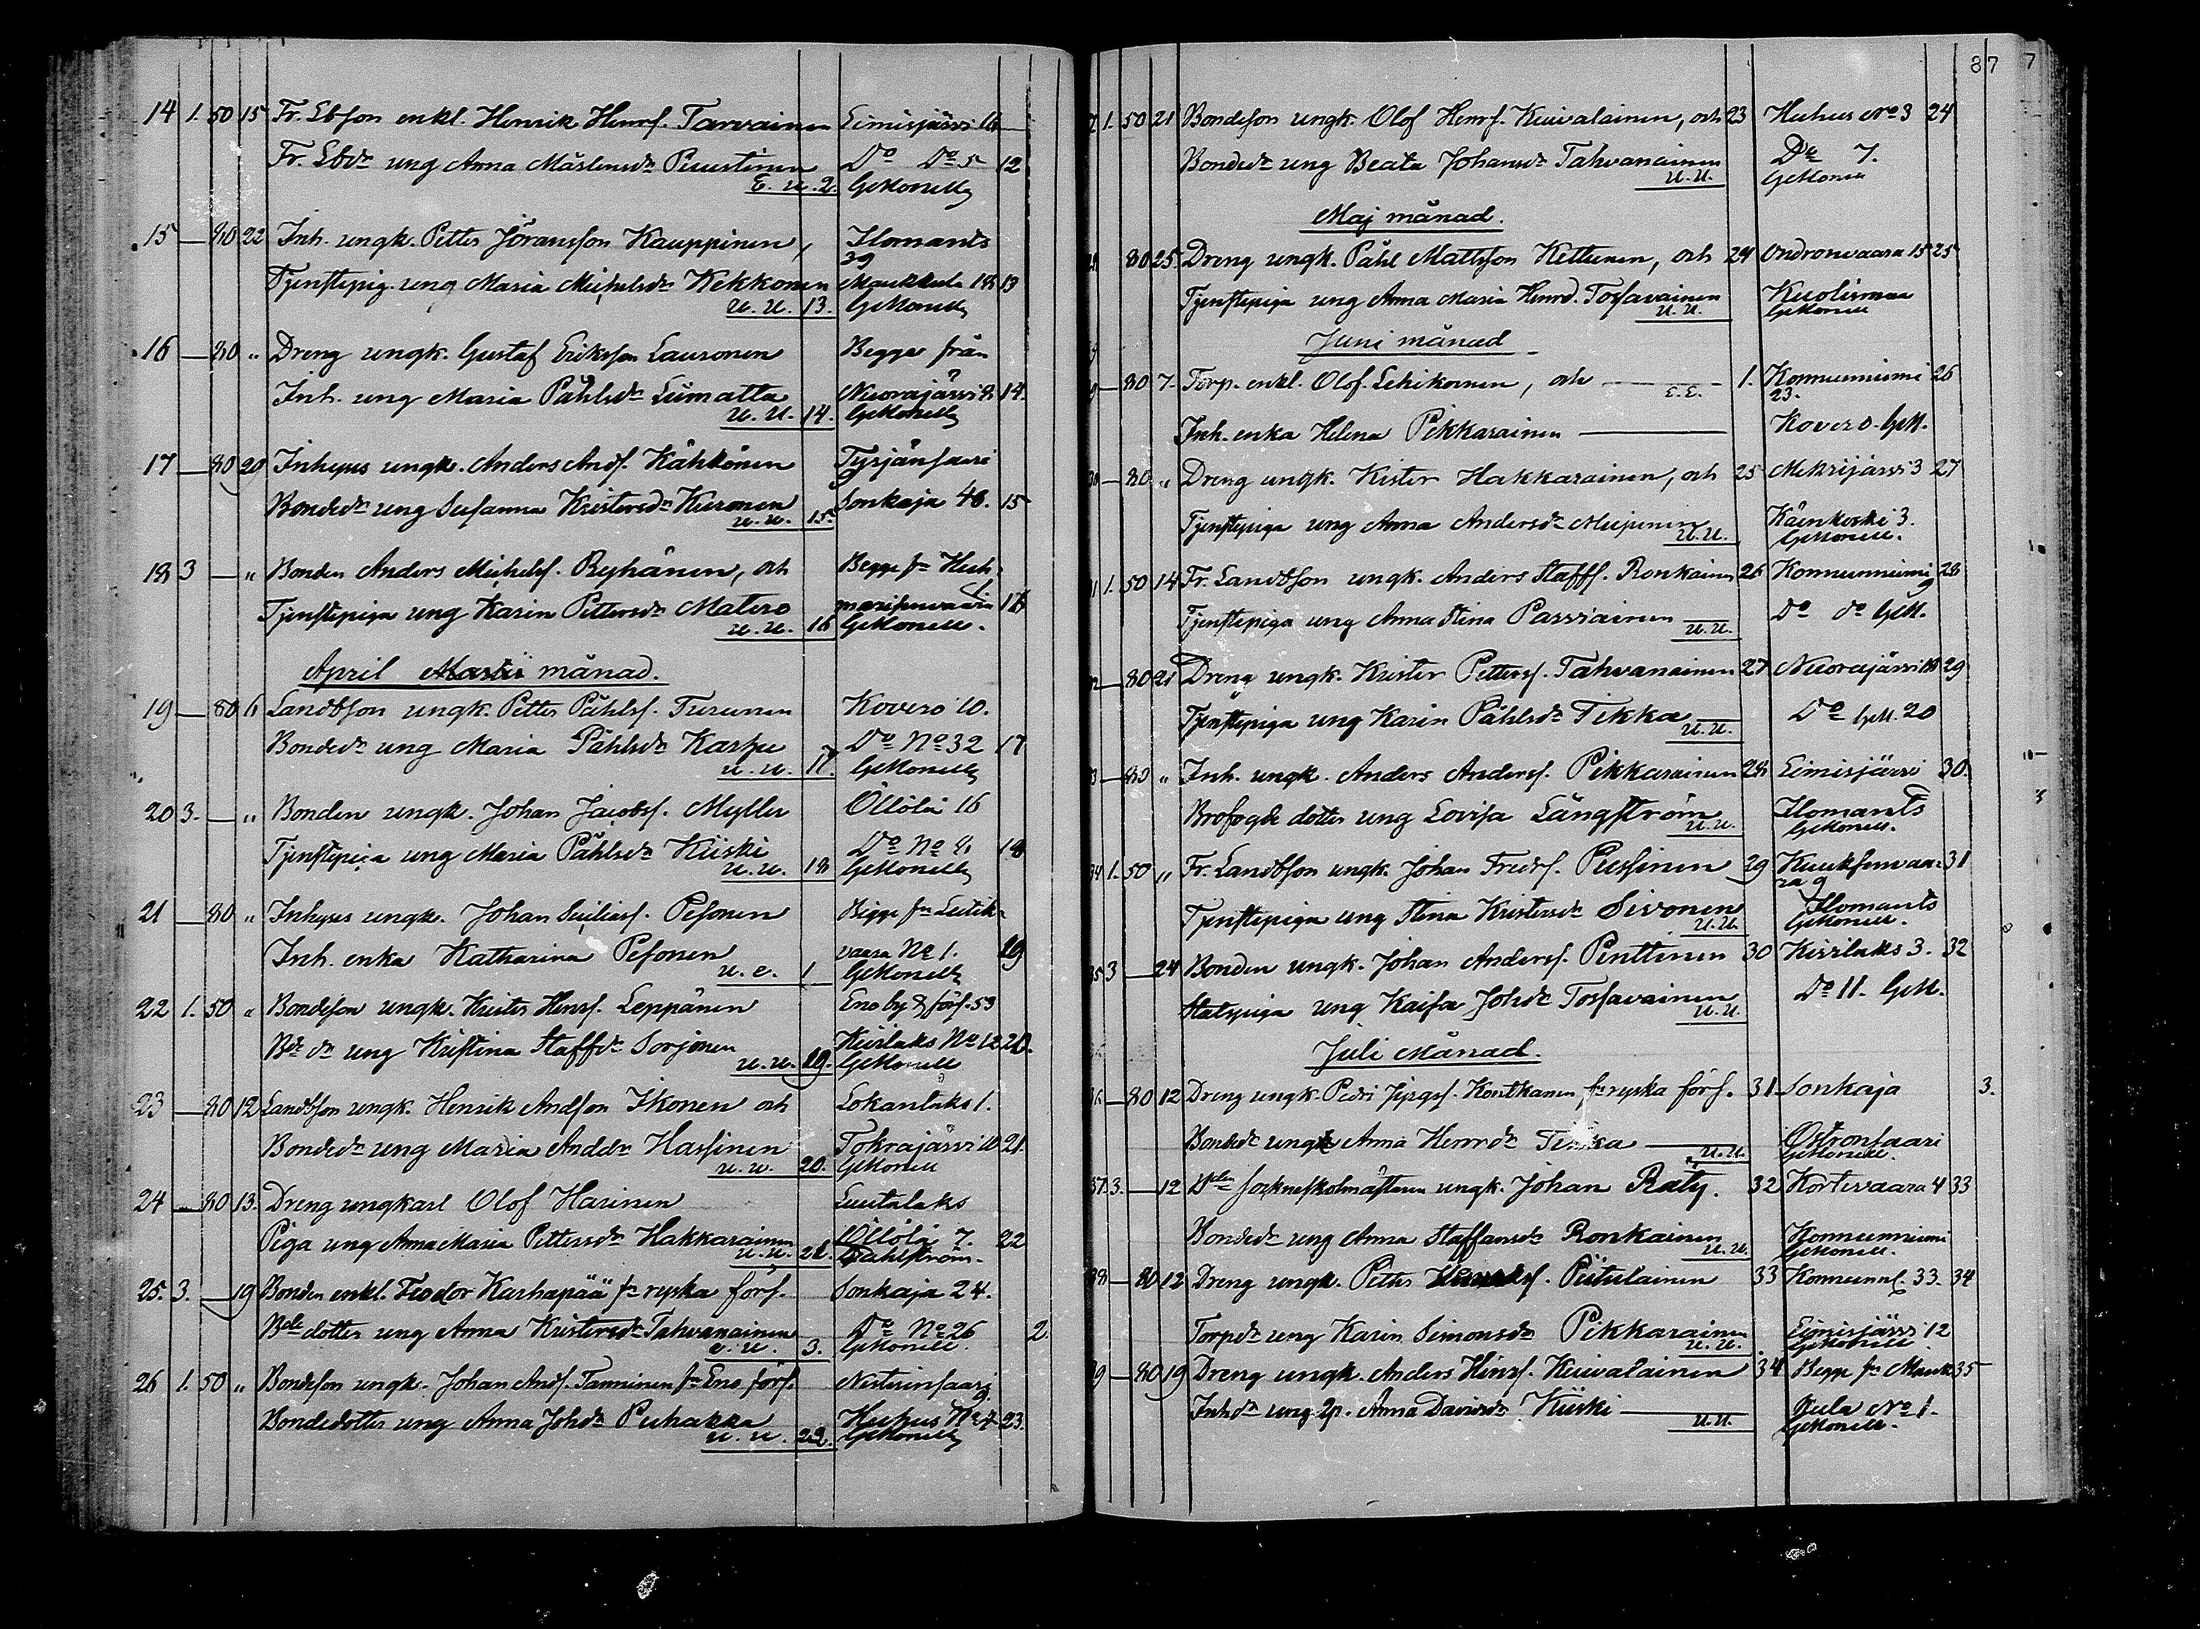 14 1. 50 15 Fr. Lbson enkl. Henrik Henrs. Tarvainen Eimisjärvi 16
Fr. Lbdr ung Anna Mårtensdr Puustinen Do Do 5 12
E. U. 2.
15 — 80 22 Inh. ungk. Petter Göransson Kauppinen, Ilomants
39
Tjenstepig. ung Maria Michelsdr Kekkonen Maukkula 18 13
U. U. 13.
16 — 80 " Dreng ungk. Gustaf Eriksson Lauronen Begge från
Inh. ung Maria Påhlsdr Liimatta Nuorajärvi 8 14.
U. U. 14.
17 — 80 20 Inhyses ungk. Anders Ands. Kähkönen Tyrjänsaari
9
Bondedr ung Susanna Kristersdr Kuronen Sonkaja 48. 15
U. U. 15.
18 3 — " Bonden Anders Michelsf. Reijhänen, och Begge fr Huh-
Tjenstepiga ung Karin Pettersdr Matero marisenvaara 16
U. U. 16
April Martii månad.
19 — 80 6 Landbson ungk. Petter Påhlsf. Turunen Kovero 10.
Bondedr ung Maria Påhlsdr Karhu Do No 32 17
U. U. 17.
20 3. — " Bonden ungk. Johan Jacobsf. Myller Öllölä 16
Tjenstepiga ung Maria Påhlsdr Kiiski Do No 8 18
U. U. 18
21 — 80 " Inhyses ungk. Johan Pesonen Begge fr Lutik-
Inh. enka Katharina Pesonen vaara No 1. 19
U. E. 1
22 1. 50 " Bondeson ungk. Krister Henrsf. Leppänen Eno by & förs. 53
Bde dr ung Kristina Staffdr Sorjonen Kivilaks No 12 20.
U. U. 19.
23 — 80 12 Landbson ungk. Henrik Andson Ikonen och Lokanlaks 1.
Bondedr ung Maria Anddr Hassinen Tokrajärvi 10 21.
U. U. 20.
24 — 80 13. Dreng ungkarl Olof Harinen Luutalaks
Piga ung Anna Maria Pettersdr Hakkarainen Öllölä 7. 22
U. U. 21. Dahlström.
25. 3. — 19 Bonden enkl. Feodor Karhapää fr ryska förs. Sonkaja 24.
Bde dotter ung Anna Kristersdr Tahvanainen Do No 26 2
E. U. 3.
26 1. 50 " Bondeson ungk. Johan Ands. Tanninen fr Eno förs.
Bondedotter ung Anna Johdr Puhakka Huhus No 4 23.
U. U. 22.
87 7
1. 50 21 Bondeson ungk. Olof Henrs. Kuivalainen, och 23 Huhus No 3 24
Bondedr ung Beata Johansdr Tahvanainen Do 7.
U. U.
Maj månad.
80 25. Dreng ungk. Påhl Mattsson Kettunen, och 24 Ondronvaara 15 25
Tjenstepiga ung Anna Maria Henrd. Tossavainen Kuolismaa
U. U.
Juni månad
— 80 7. Torp. enkl. Olof Lehikoinen, och — 1. Konnunniemi 26
E. E. 23.
Inh. enka Helena Pikkarainen — Kovero. GM.
— 80 " Dreng ungk. Krister Hakkarainen, och 25 Mekrijärvi 3 27
Tjenstepiga ung Anna Andersdr Käenkoski 3.
U. U.
1. 50 14 Fr. Landbson ungk. Anders Staffs. Ronkainen 26 Konnunniemi 28
9
Tjenstepiga ung Anna Stina Parviainen Do do GM.
U. U.
— 80 21 Dreng ungk. Krister Pettersf. Tahvanainen 27 Nuorajärvi 18 29
Tjenstepiga ung Karin Påhlsdr Tikka Do GM. 20
U. U.
— 80 " Inh. ungk. Anders Andersf. Pikkarainen 28 Eimisjärvi 30.
Brofogde dotter ung Lovisa Långström Ilomants
U. U.
34 1. 50 " Fr. Landbson ungk. Johan Fredrf. Pussinen 29 Kuuksenvaa- 31
ra 9
Tjenstepiga ung Stina Kristersdr Sivonen Ilomants
U. U.
35 3 — 24 Bonden ungk. Johan Andersf. Penttinen 30 Kivilaks 3. 32
Statspiga ung Kaisa Johdr Tossavainen Do 11. GM.
U. U.
Juli Månad.
— 80 12 Dreng ungk. Kontkanen fr ryska förs. 31 Sonkaja 3.
Bondedr ung Anna Henrdr Tikka
U. U.
37 3. — 12 ungk. Johan Räty. 32 Kortevaara 4 33
Bondedr ung Anna Staffansdr Ronkainen Konnunniemi
U. U.
38 — 80 12 Dreng ungk. Petter Piitulainen 33 Konnunn. 33. 34
Torpdr ung Karin Simonsdr Pikkarainen Eimisjärvi 12
U. U.
9 — 80 19 Dreng ungk. Anders Henrsf. Kuivalainen 34 Begge fr Mauk- 35
Inhdr ung Anna Davidsdr Kiiski — kula No 1.
U. U.